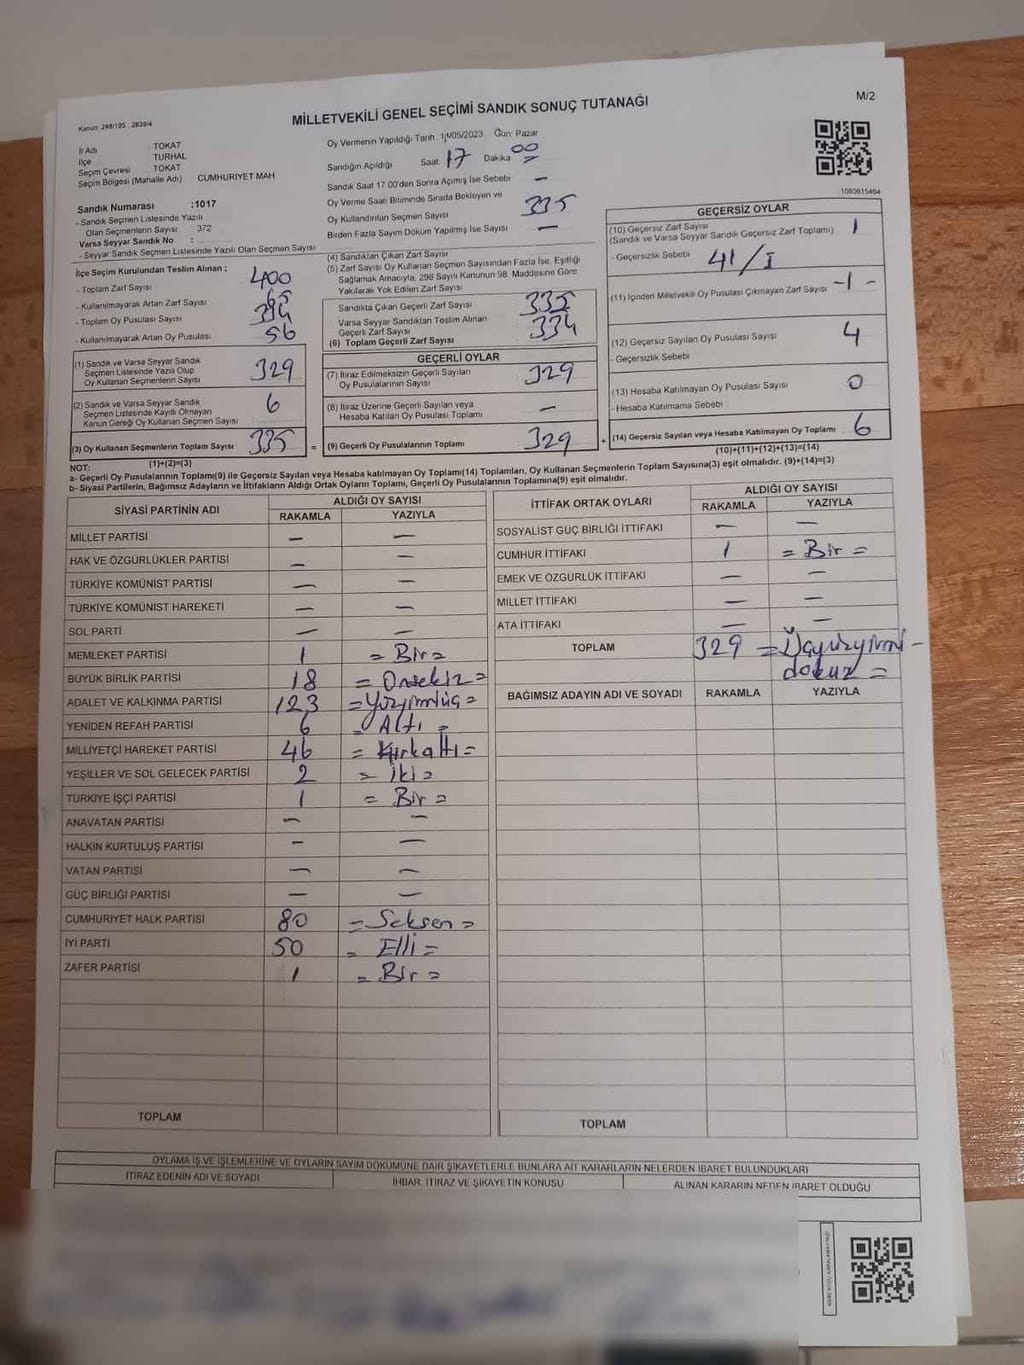 Kanun: 298/105 , 2839/4
MİLLETVEKİLİ GENEL SEÇİMİ SANDIK SONUÇ TUTANAĞI
M/2
İl Adı TOKAT
İlçe TURHAL
Seçim Çevresi TOKAT
Seçim Bölgesi (Mahalle Adı) CUMHURIYET MAH.
Oy Vermenin Yapıldığı Tarih : 14/05/2023 Gün: Pazar
Sandığın Açıldığı Saat: 17 Dakika 00
Sandık Saat 17:00'den Sonra Açımış İse Sebebi —
Oy Verme Saati Bitiminde Sırada Bekleyen ve
Oy Kullandırılan Seçmen Sayısı 335
Birden Fazla Sayım Döküm Yapılmış İse Sayısı —
1083615464
Sandık Numarası :1017
- Sandık Seçmen Listesinde Yazılı
Olan Seçmenlerin Sayısı 372
Varsa Seyyar Sandık No :
- Seyyar Sandık Seçmen Listesinde Yazılı Olan Seçmen Sayısı
İlçe Seçim Kurulundan Teslim Alınan ;
- Toplam Zarf Sayısı 400
- Kullanılmayarak Artan Zarf Sayısı 65
- Toplam Oy Pusulası Sayısı
- Kullanılmayarak Artan Oy Pusulası 56
(1) Sandık ve Varsa Seyyar Sandık
Seçmen Listesinde Yazılı Olup
Oy Kullanan Seçmenlerin Sayısı 329
(2) Sandık ve Varsa Seyyar Sandık
Seçmen Listesinde Kayıtlı Olmayan
Kanun Gereği Oy Kullanan Seçmen Sayısı 6
(3) Oy Kullanan Seçmenlerin Toplam Sayısı 335 =
(1)+(2)=(3)
(4) Sandıktan Çıkan Zarf Sayısı
(5) Zarf Sayısı Oy Kullanan Seçmen Sayısından Fazla İse, Eşitliği
Sağlamak Amacıyla, 298 Sayılı Kanunun 98. Maddesine Göre
Yakılarak Yok Edilen Zarf Sayısı
Sandıkta Çıkan Geçerli Zarf Sayısı 335
Varsa Seyyar Sandıktan Teslim Alınan
Geçerli Zarf Sayısı 334
(6) Toplam Geçerli Zarf Sayısı
GEÇERLİ OYLAR
(7) İtiraz Edilmeksizin Geçerli Sayılan
Oy Pusulalarının Sayısı 329
(8) İtiraz Üzerine Geçerli Sayılan veya
Hesaba Katılan Oy Pusulası Toplamı —
(9) Geçerli Oy Pusulalarının Toplamı 329 +
GEÇERSİZ OYLAR
(10) Geçersiz Zarf Sayısı
(Sandık ve Varsa Seyyar Sandık Geçersiz Zarf Toplamı) 1
- Geçersizlik Sebebi 41/I
(11) İçinden Milletvekili Oy Pusulası Çıkmayan Zarf Sayısı -1-
(12) Geçersiz Sayılan Oy Pusulası Sayısı 4
- Geçersizlik Sebebi
(13) Hesaba Katılmayan Oy Pusulası Sayısı 0
- Hesaba Katılmama Sebebi
(14) Geçersiz Sayılan veya Hesaba Katılmayan Oy Toplamı 6
(10)+(11)+(12)+(13)=(14)
NOT:
a- Geçerli Oy Pusulalarının Toplamı(9) ile Geçersiz Sayılan veya Hesaba katılmayan Oy Toplamı(14) Toplamları, Oy Kullanan Seçmenlerin Toplam Sayısına(3) eşit olmalıdır. (9)+(14)=(3)
b- Siyasi Partilerin, Bağımsız Adayların ve İttifakların Aldığı Ortak Oyların Toplamı, Geçerli Oy Pusulalarının Toplamına(9) eşit olmalıdır.
SİYASİ PARTİNİN ADI ALDIĞI OY SAYISI
RAKAMLA YAZIYLA
MİLLET PARTİSİ — —
HAK VE ÖZGÜRLÜKLER PARTİSİ — —
TÜRKİYE KOMÜNİST PARTİSİ — —
TÜRKİYE KOMÜNİST HAREKETİ — —
SOL PARTİ — —
MEMLEKET PARTİSİ 1 = Bir =
BÜYÜK BİRLİK PARTİSİ 18 = Onsekiz =
ADALET VE KALKINMA PARTİSİ 123 = Yüzyirmiüç =
YENİDEN REFAH PARTİSİ 6 = Altı =
MİLLİYETÇİ HAREKET PARTİSİ 46 = Kırkaltı =
YEŞİLLER VE SOL GELECEK PARTİSİ 2 = İki =
TÜRKİYE İŞÇİ PARTİSİ 1 = Bir =
ANAVATAN PARTİSİ — —
HALKIN KURTULUŞ PARTİSİ — —
VATAN PARTİSİ — —
GÜÇ BİRLİĞİ PARTİSİ — —
CUMHURİYET HALK PARTİSİ 80 = Seksen =
İYİ PARTİ 50 = Elli =
ZAFER PARTİSİ 1 = Bir =
TOPLAM
İTTİFAK ORTAK OYLARI ALDIĞI OY SAYISI
RAKAMLA YAZIYLA
SOSYALİST GÜÇ BİRLİĞİ İTTİFAKI — —
CUMHUR İTTİFAKI 1 = Bir =
EMEK VE ÖZGÜRLÜK İTTİFAKI — —
MİLLET İTTİFAKI — —
ATA İTTİFAKI — —
TOPLAM 329 = Üçyüzyirmi-
dokuz =
BAĞIMSIZ ADAYIN ADI VE SOYADI RAKAMLA YAZIYLA
TOPLAM
OYLAMA İŞ VE İŞLEMLERİNE VE OYLARIN SAYIM DÖKÜMÜNE DAİR ŞİKAYETLERLE BUNLARA AİT KARARLARIN NELERDEN İBARET BULUNDUKLARI
İTİRAZ EDENİN ADI VE SOYADI İHBAR, İTİRAZ VE ŞİKAYETİN KONUSU ALINAN KARARIN NEDEN İBARET OLDUĞU